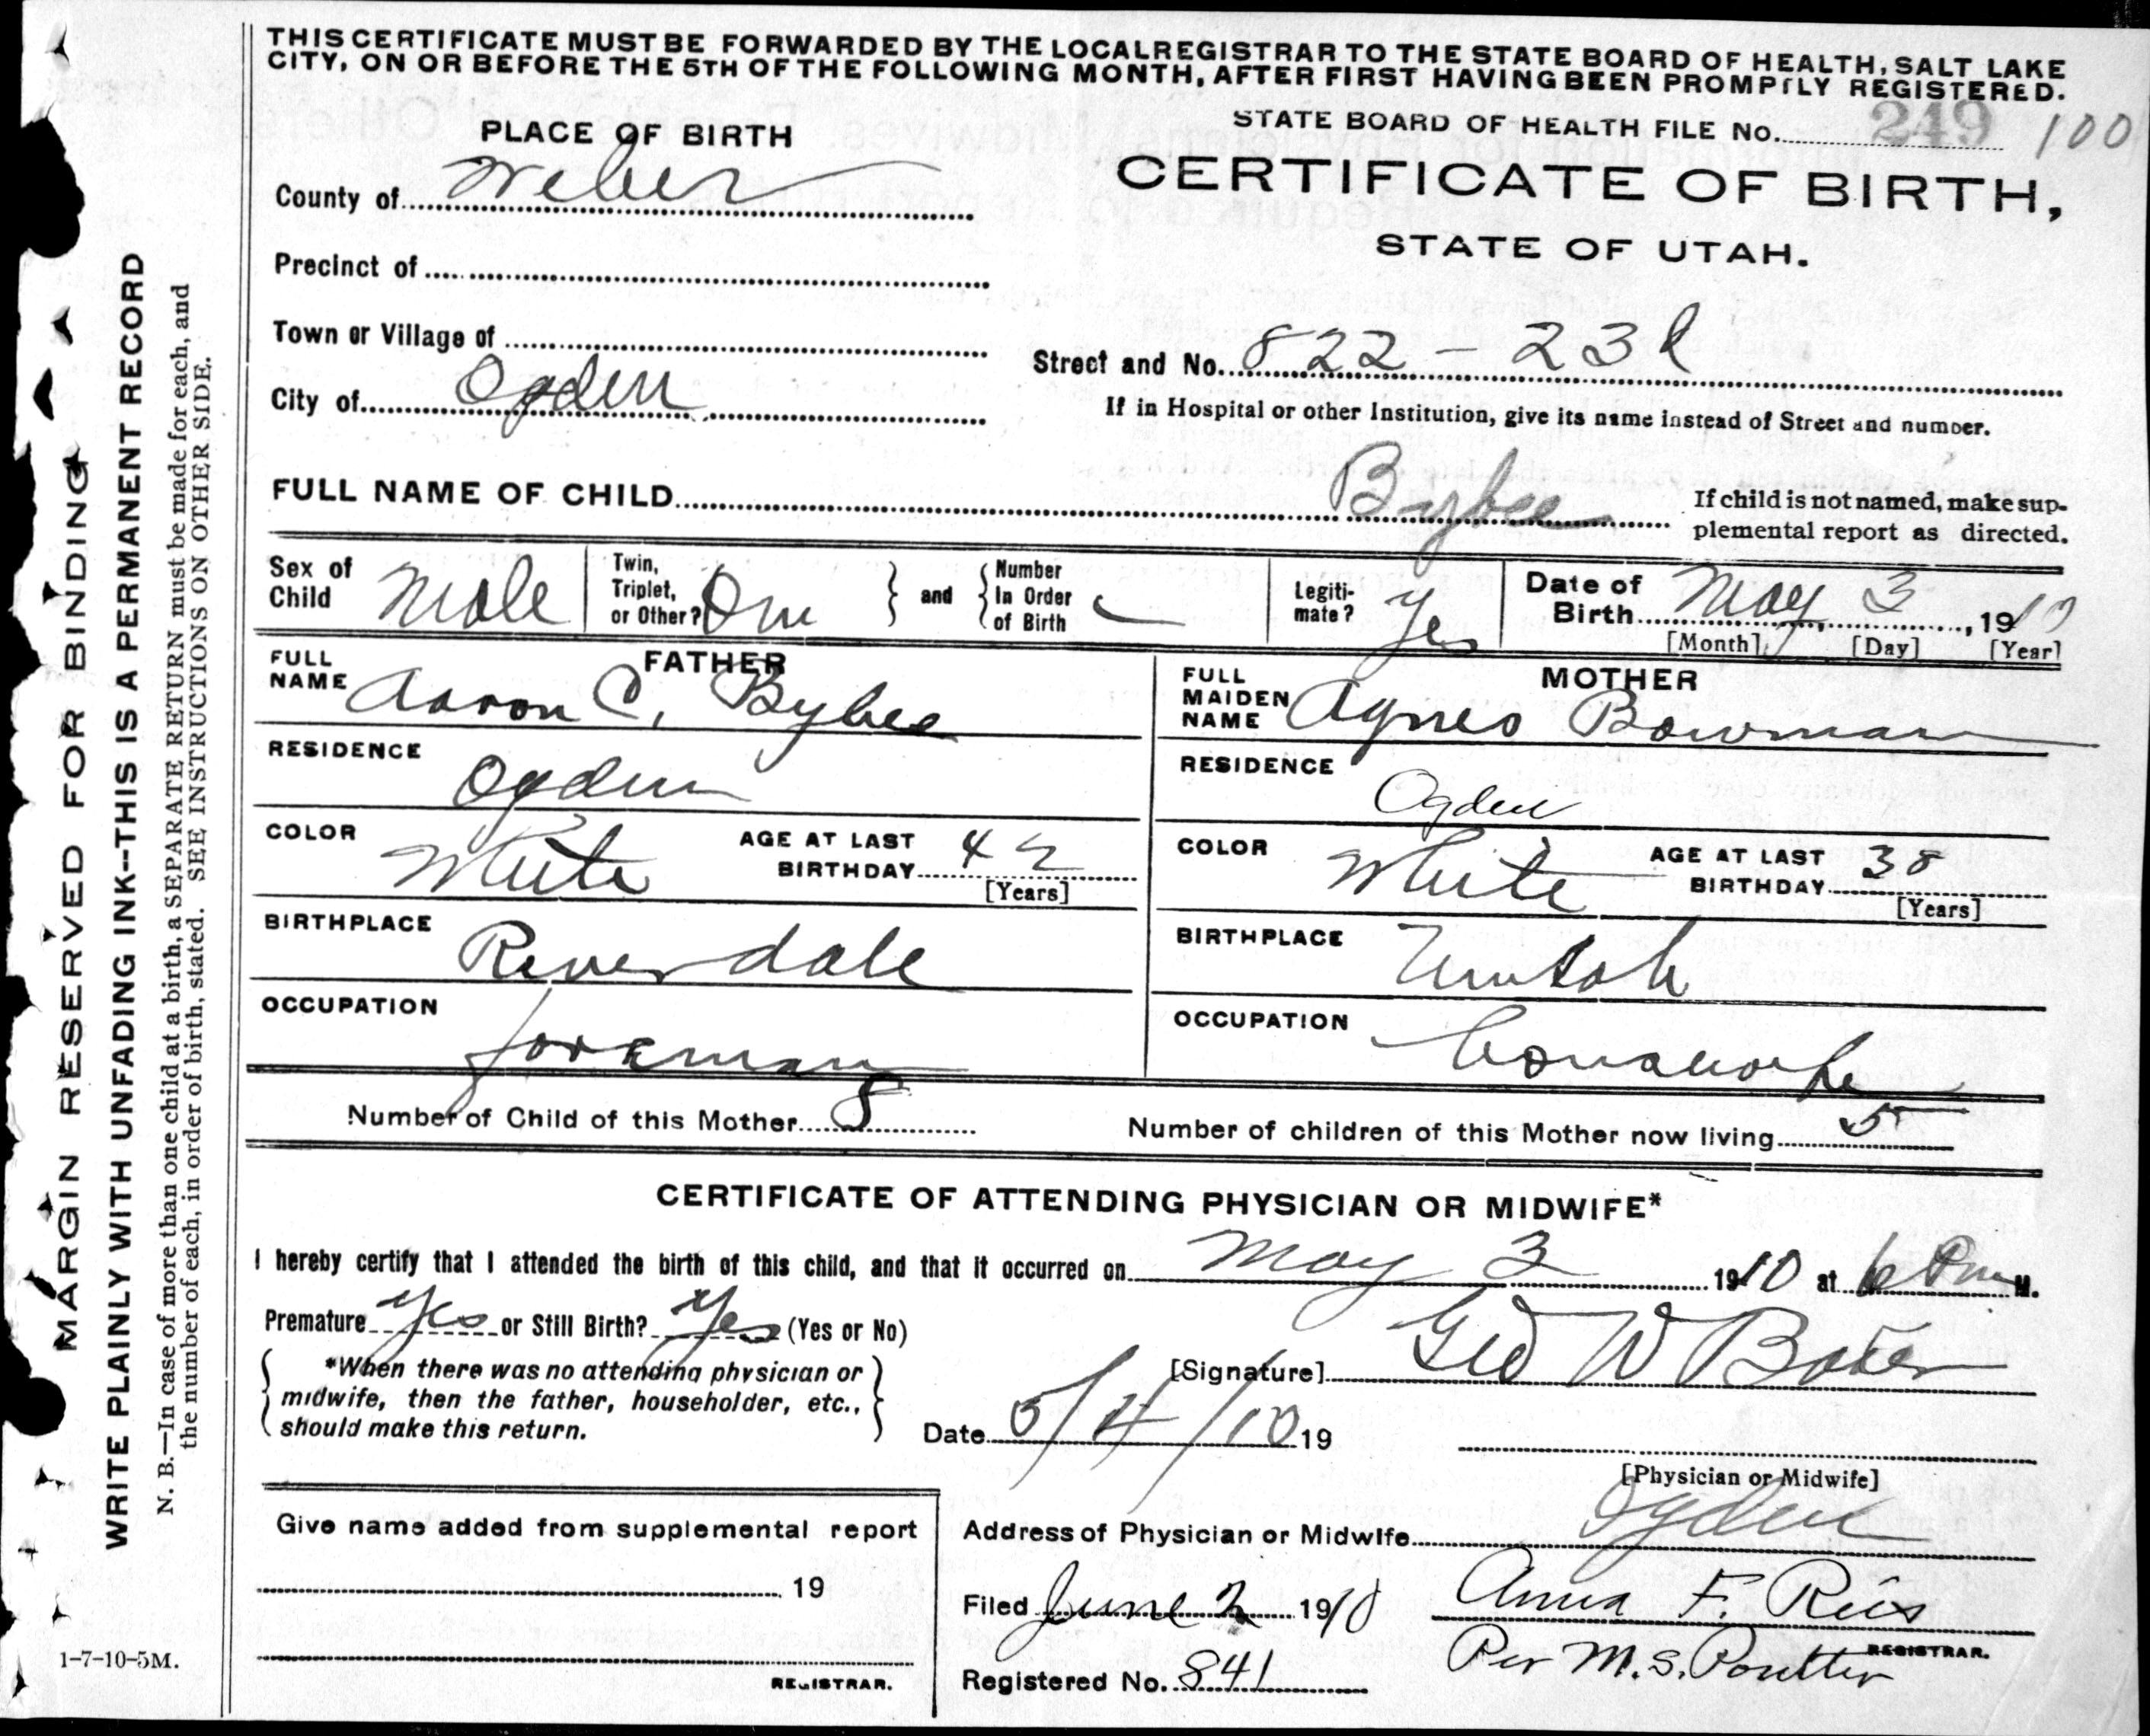 THIS CERTIFICATE MUST BE FORWARDED BY THE LOCAL REGISTRAR TO THE STATE BOARD OF HEALTH, SALT LAKE
CITY, ON OR BEFORE THE 5TH OF THE FOLLOWING MONTH, AFTER FIRST HAVING BEEN PROMPTLY REGISTERED.
STATE BOARD OF HEALTH FILE NO. 249 100
PLACE OF BIRTH
CERTIFICATE OF BIRTH,
STATE OF UTAH.
County of Weber
Precinct of
Town or Village of
Street and No. 822 - 23d
City of Ogden
If in Hospital or other Institution, give its name instead of Street and number.
FULL NAME OF CHILD Bybee
If child is not named, make sup-
plemental report as directed.
Sex of Child Male
Twin, Triplet, or Other? One
and
Number In Order of Birth
Legiti-mate? Yes
Date of Birth May 3, 1910
[Month] [Day] [Year]
FATHER
FULL NAME Aaron C. Bybee
MOTHER
FULL MAIDEN NAME Agnes Bowman
RESIDENCE Ogden
RESIDENCE Ogden
COLOR White AGE AT LAST BIRTHDAY 42
[Years]
COLOR White AGE AT LAST BIRTHDAY 38
[Years]
BIRTHPLACE Riverdale
BIRTHPLACE
OCCUPATION foreman
OCCUPATION
Number of Child of this Mother 8
Number of children of this Mother now living 5
CERTIFICATE OF ATTENDING PHYSICIAN OR MIDWIFE*
I hereby certify that I attended the birth of this child, and that it occurred on May 3 1910 at 6 Pm M.
Premature Yes or Still Birth? Yes (Yes or No)
*When there was no attending physician or
midwife, then the father, householder, etc.,
should make this return.
[Signature] Geo W Baker
Date 5/4/10 19
[Physician or Midwife]
Give name added from supplemental report
19
REGISTRAR.
Address of Physician or Midwife Ogden
Filed June 2 1910 Anna F. Ries
REGISTRAR.
Per M. S. Poulter
Registered No. 841
MARGIN RESERVED FOR BINDING
WRITE PLAINLY WITH UNFADING INK--THIS IS A PERMANENT RECORD
N. B.—In case of more than one child at a birth, a SEPARATE RETURN must be made for each, and
the number of each, in order of birth, stated. SEE INSTRUCTIONS ON OTHER SIDE.
1-7-10-5M.